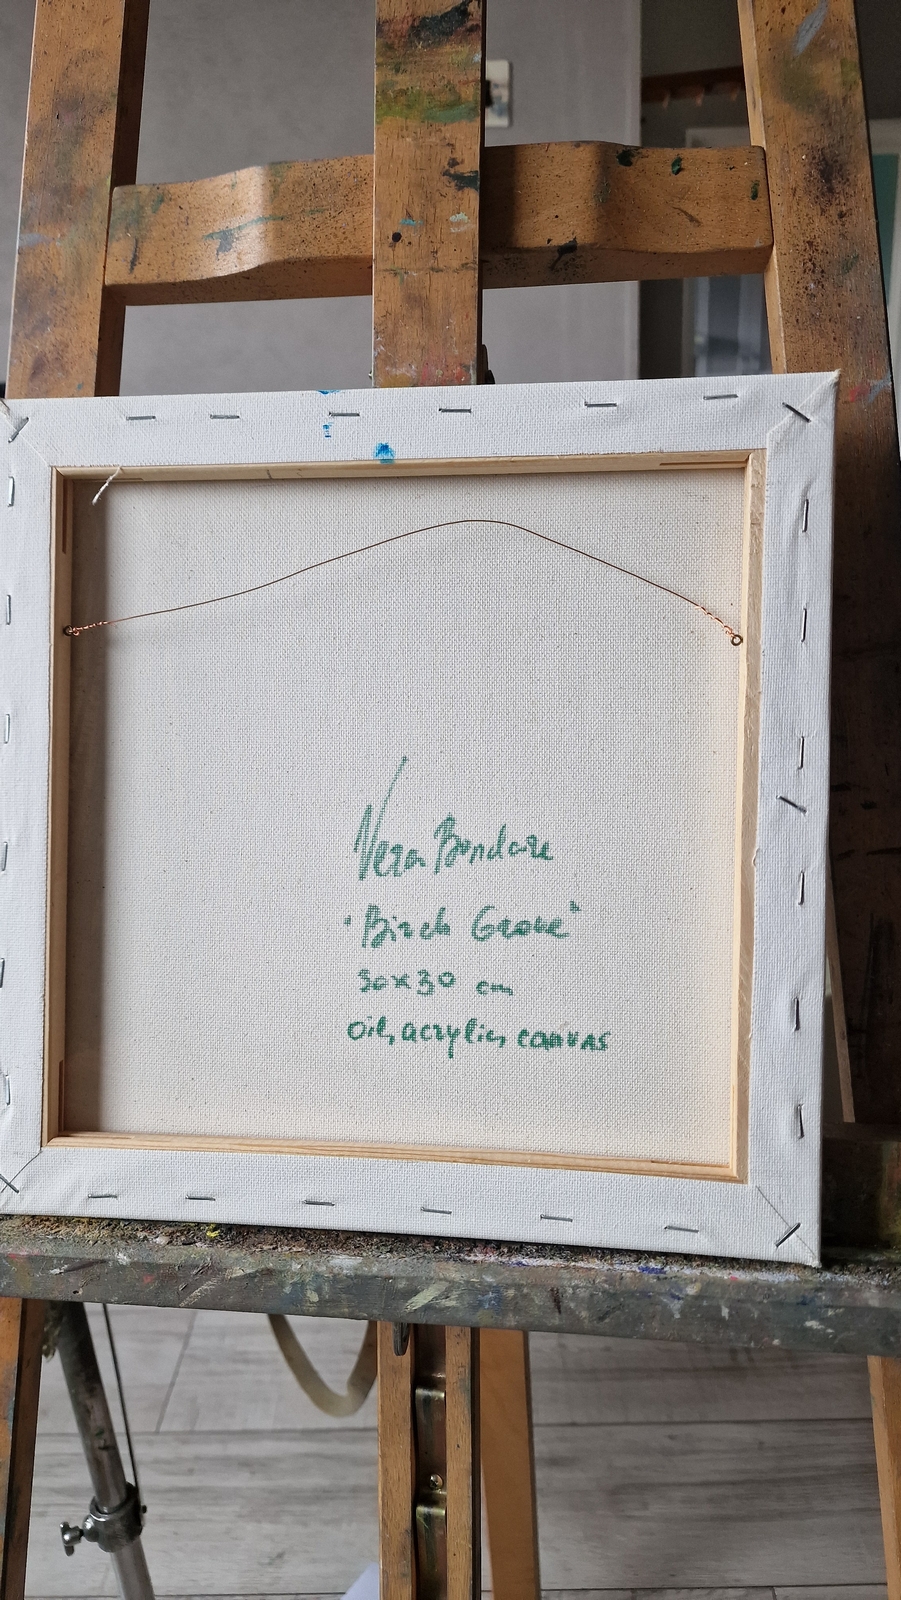 Vera Bondare
"Birch Grove"
30x30 cm
oil, acrylic, canvas